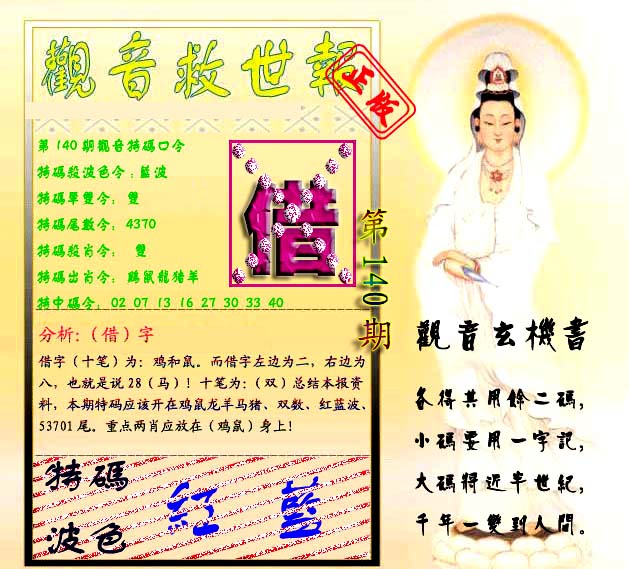 觀音救世報
正版
第140期觀音特碼口令
特碼殺波色令:藍波
特碼單雙令: 雙
特碼尾數令: 4370
特碼殺肖令: 雙
特碼出肖令: 鷄鼠龍猪羊
特中碼令: 02 07 13 16 27 30 33 40
借
第140期
分析:(借)字
借字(十笔)为: 鸡和鼠。而借字左边为二, 右边为
八, 也就是说28(马)! 十笔为:(双)总结本报资
料, 本期特码应该开在鸡鼠龙羊马猪、双数、红蓝波、
53701尾。重点两肖应放在(鸡鼠)身上!
特碼
波色
紅 藍
觀音玄機書
各得其用餘二碼,
小碼要用一字記,
大碼將近半世紀,
千年一變到人間。